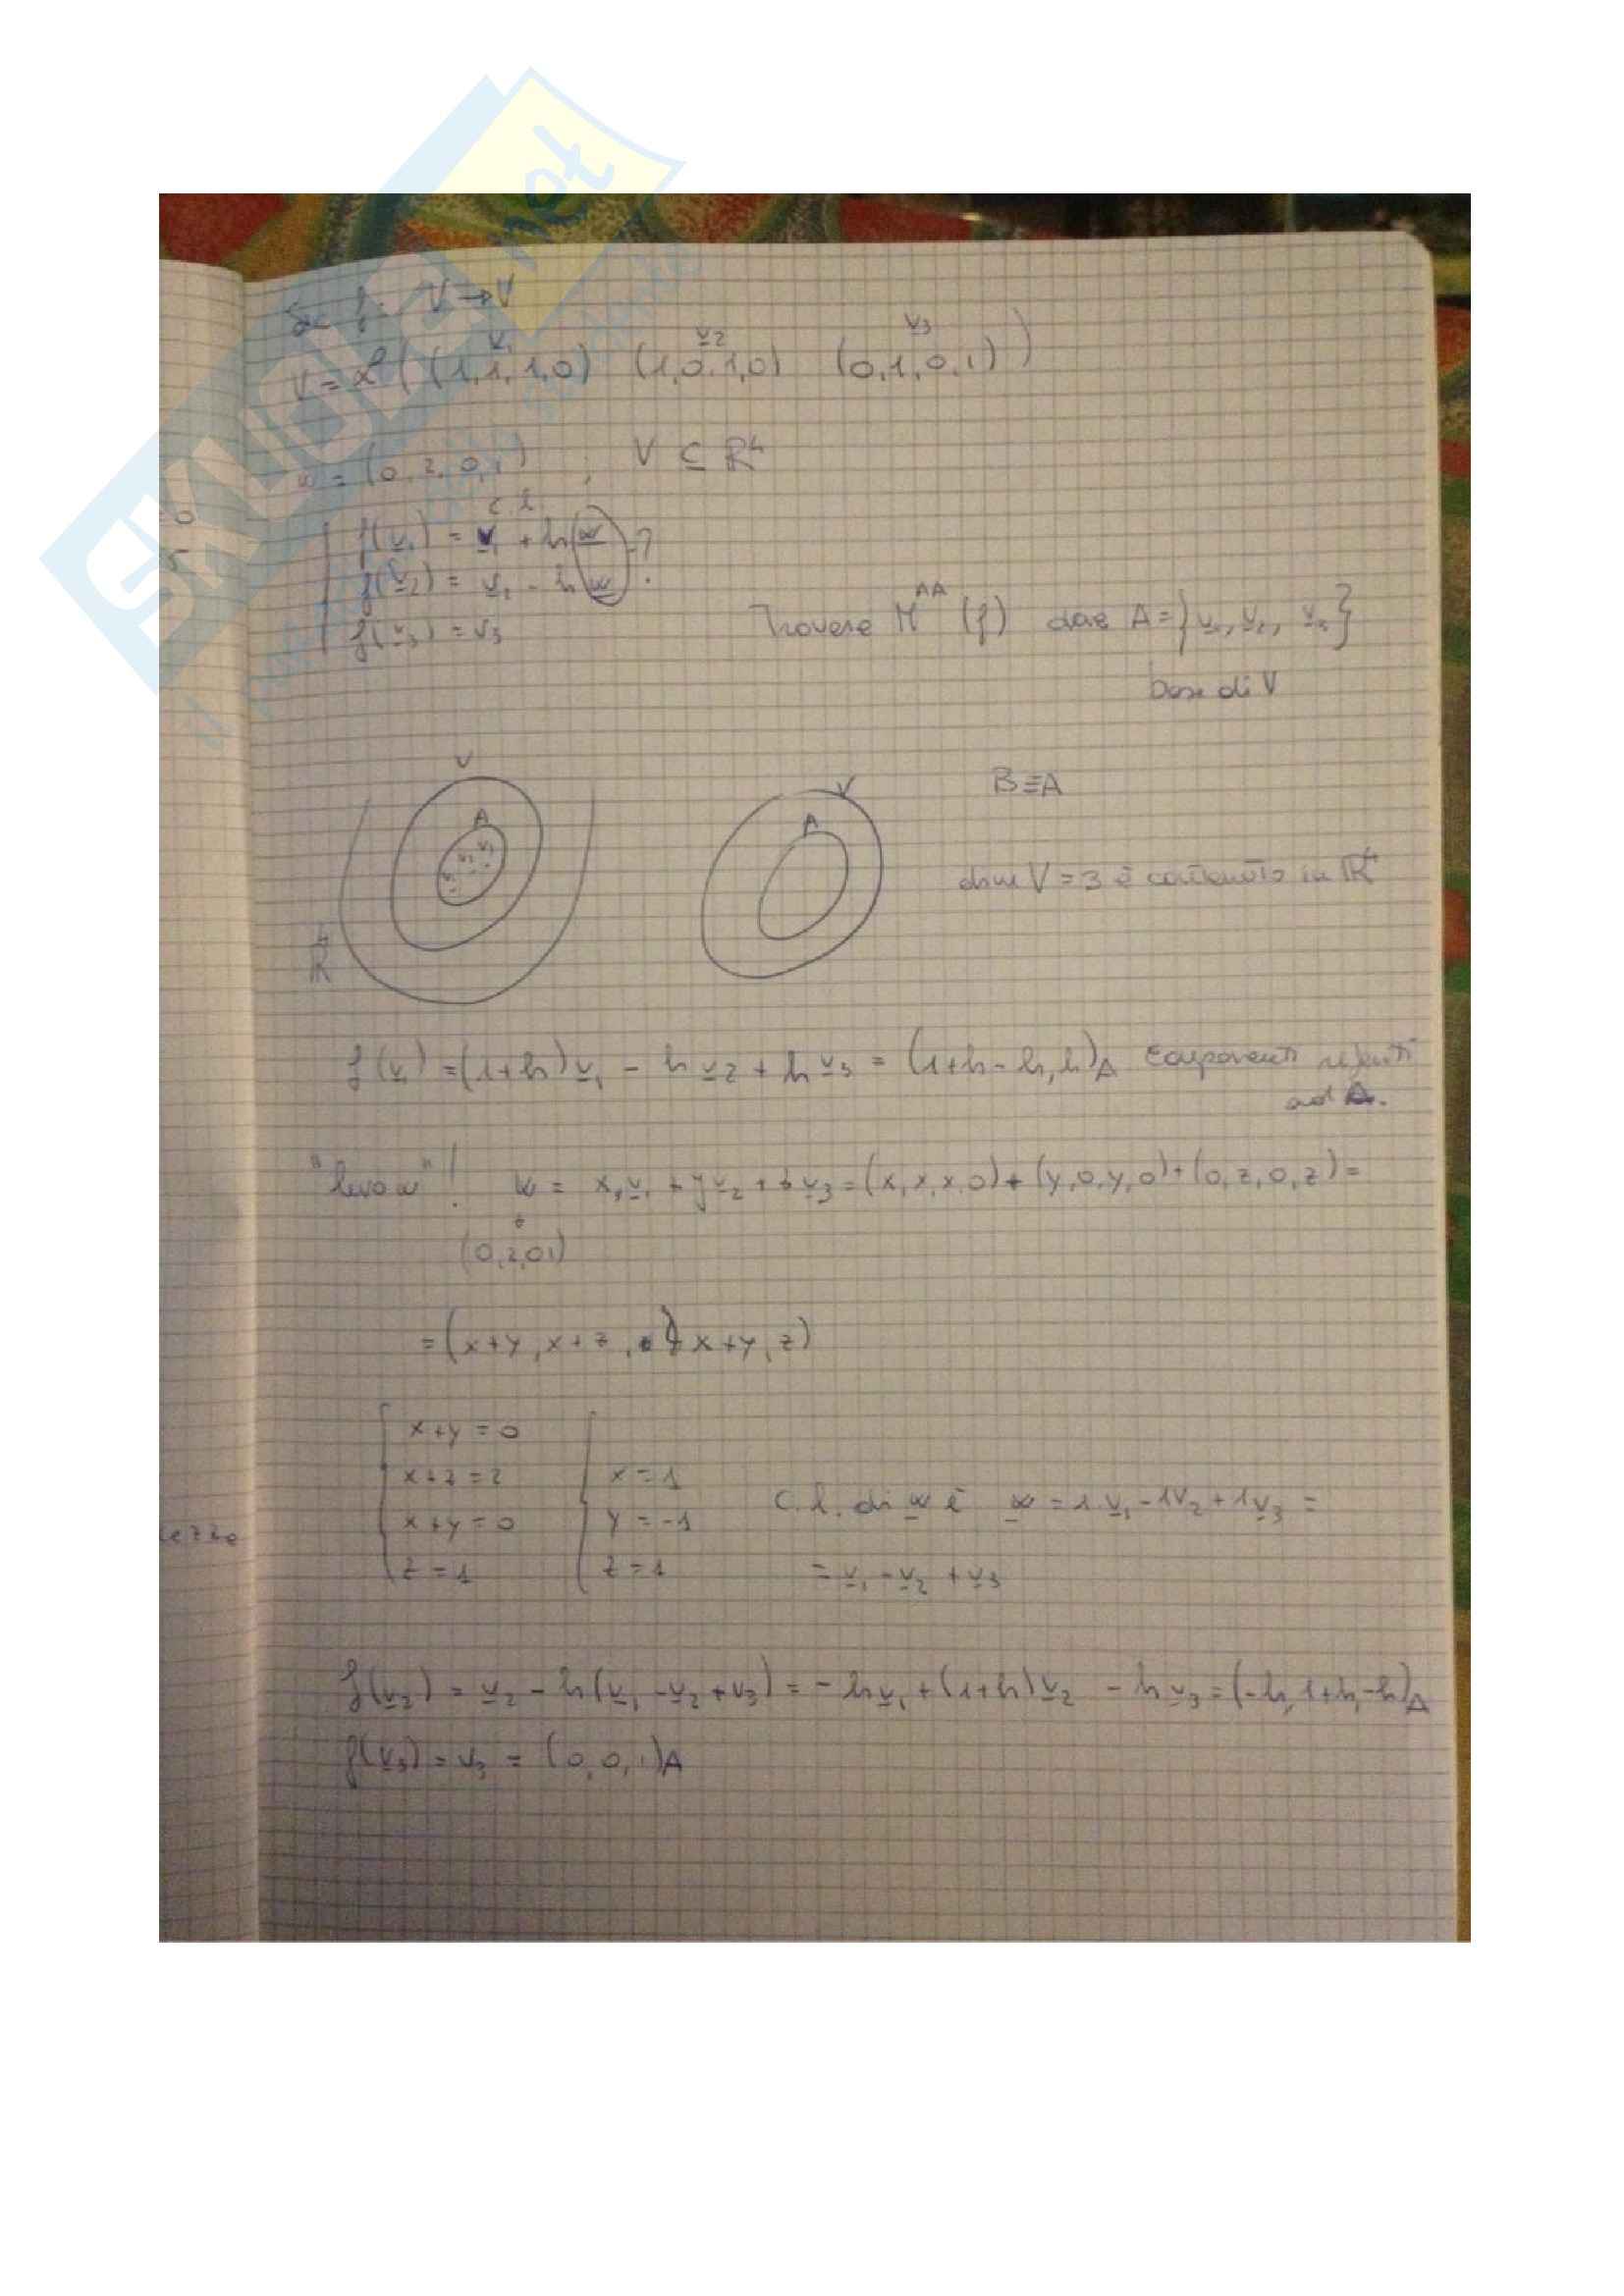 Sia f: V → V
V = L((1,1,1,0) (1,0,1,0) (0,1,0,1))
v1 v2 v3
w = (0,2,0,1) ; V ⊆ R⁴
c.l.
f(v1) = v1 + h w
f(v2) = v2 - h w ?
f(v3) = v3
Trovare M^AA (f) dove A = {v1, v2, v3}
base di V
V
A
v1 v2 v3
R⁴
V
A
B≡A
dim V = 3 è contenuto in R⁴
f(v1) = (1+h)v1 - h v2 + h v3 = (1+h - h, h)A Componenti riferiti
ad A.
! w = x, v1 + y v2 + z v3 = (x, x, x, 0) + (y, 0, y, 0) + (0, z, 0, z) =
(0,2,01)
= (x+y, x+z, x+y, z)
x+y = 0
x+z = 2
x+y = 0
z = 1
x = 1
y = -1
z = 1
C.l. di w è w = 1 v1 - 1v2 + 1v3 =
= v1 - v2 + v3
f(v2) = v2 - h(v1 - v2 + v3) = - hv1 + (1+h)v2 - h v3 = (-h, 1+h, -h)A
f(v3) = v3 = (0,0,1)A
SKUOLA
net